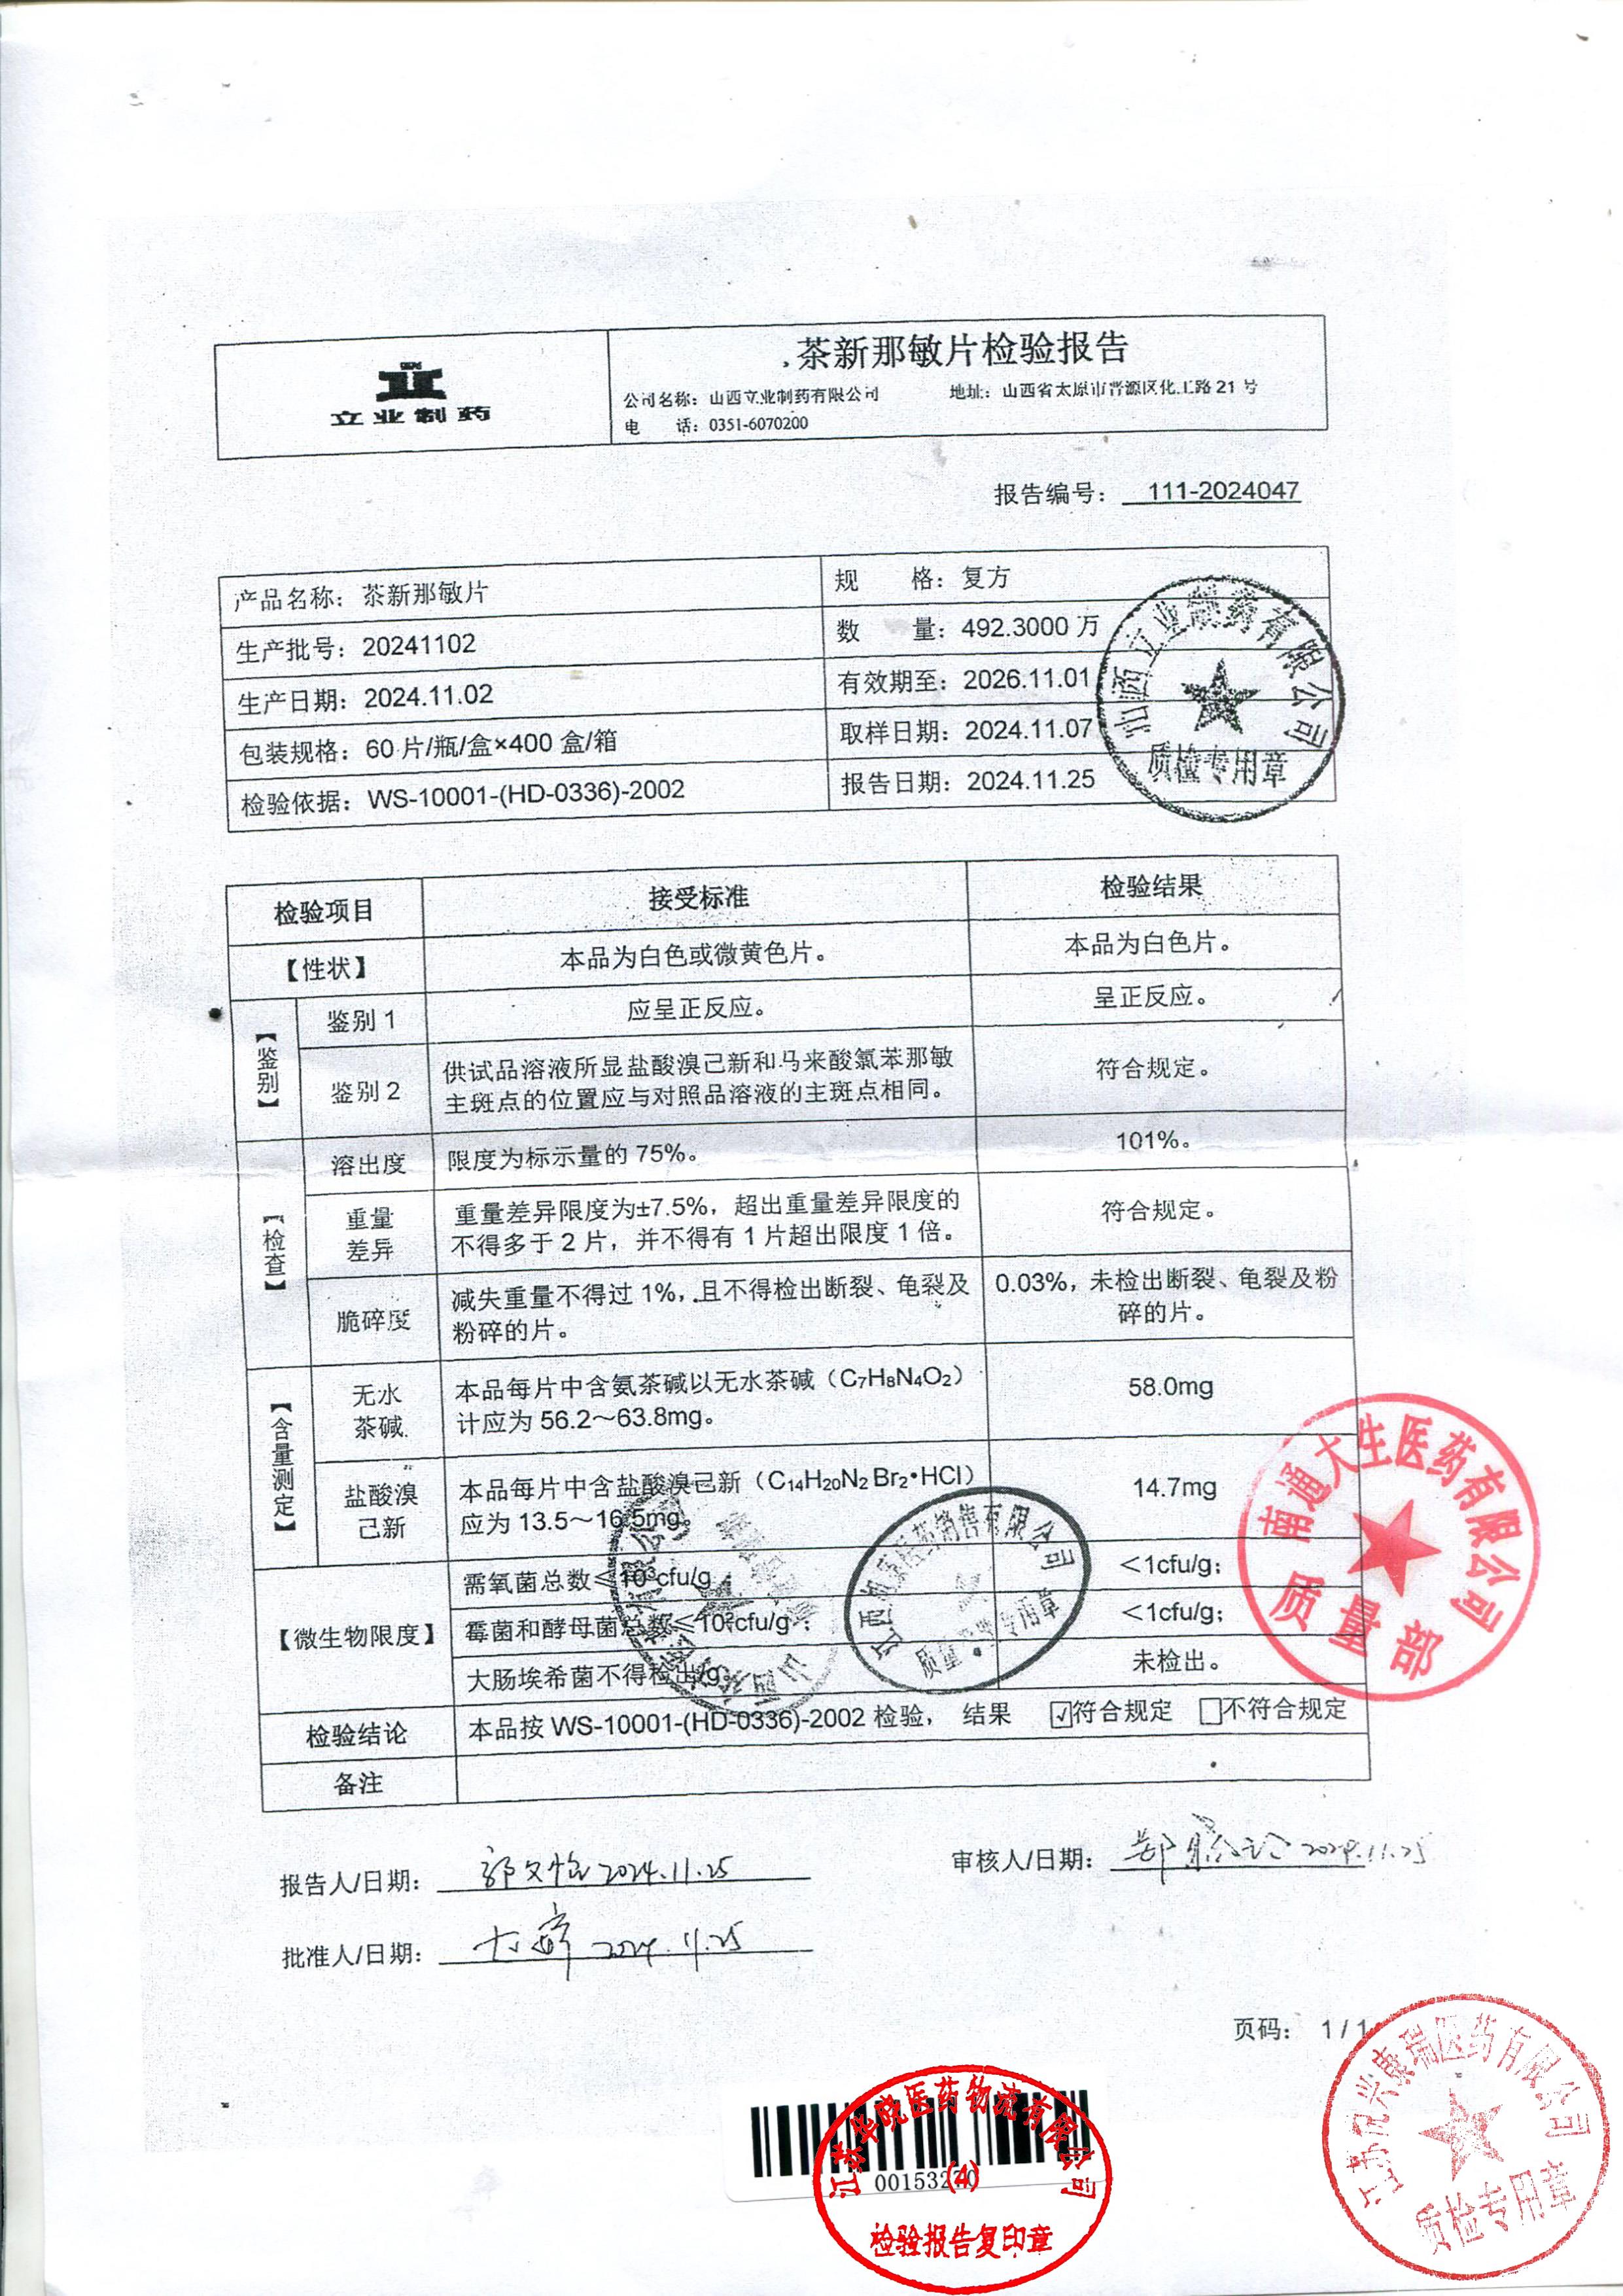 立业制药
茶新那敏片检验报告
公司名称：山西立业制药有限公司 地址：山西省太原市晋源区化工路 21 号
电 话：0351-6070200
报告编号： 111-2024047
产品名称：茶新那敏片 规 格：复方
生产批号：20241102 数 量：492.3000 万
生产日期：2024.11.02 有效期至：2026.11.01
包装规格：60 片/瓶/盒×400 盒/箱 取样日期：2024.11.07
检验依据：WS-10001-(HD-0336)-2002 报告日期：2024.11.25
山西立业制药有限公司
质检专用章
检验项目 接受标准 检验结果
【性状】 本品为白色或微黄色片。 本品为白色片。
【鉴别】
鉴别 1 应呈正反应。 呈正反应。
鉴别 2 供试品溶液所显盐酸溴己新和马来酸氯苯那敏 符合规定。
主斑点的位置应与对照品溶液的主斑点相同。
【检查】
溶出度 限度为标示量的 75%。 101%。
重量差异 重量差异限度为±7.5%，超出重量差异限度的 符合规定。
不得多于 2 片，并不得有 1 片超出限度 1 倍。
脆碎度 减失重量不得过 1%，且不得检出断裂、龟裂及 0.03%，未检出断裂、龟裂及粉
粉碎的片。 碎的片。
【含量测定】
无水茶碱 本品每片中含氨茶碱以无水茶碱（C₇H₈N₄O₂） 58.0mg
计应为 56.2～63.8mg。
盐酸溴己新 本品每片中含盐酸溴己新（C₁₄H₂₀N₂Br₂•HCl） 14.7mg
应为 13.5～16.5mg。
【微生物限度】
需氧菌总数≤10³cfu/g ＜1cfu/g；
霉菌和酵母菌总数≤10²cfu/g； ＜1cfu/g；
大肠埃希菌不得检出/g。 未检出。
检验结论 本品按 WS-10001-(HD-0336)-2002 检验， 结果 ☑符合规定 □不符合规定
备注
南通大生医药有限公司
质量部
医药销售有限公司
专用章
报告人/日期： 2024.11.25 审核人/日期： 2024.11.25
批准人/日期： 2024.11.25
页码： 1 / 1
江苏华晓医药物流有限公司
(4)
检验报告复印章
兴康瑞医药有限公司
质检专用章